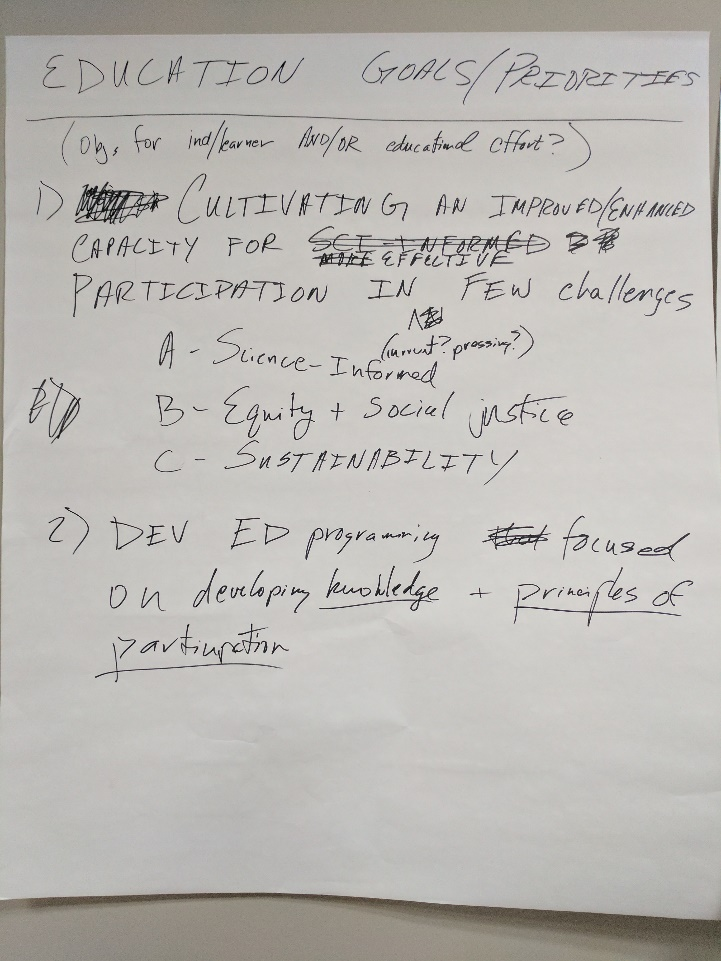 EDUCATION GOALS/PRIORITIES
(Obj. for ind/learner AND/OR educational effort?)
1) CULTIVATING AN IMPROVED/ENHANCED
CAPACITY FOR SCI-INFORMED
MORE EFFECTIVE
PARTICIPATION IN FEW challenges
(current? pressing?)
A - Science-Informed
B - Equity + Social justice
C - SUSTAINABILITY
2) DEV ED programming that focused
on developing knowledge + principles of
participation